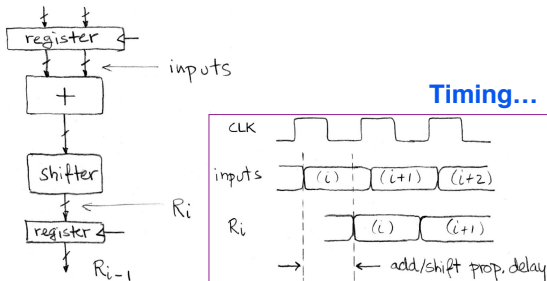 register
inputs
+
shifter
Ri
register
Ri-1
Timing...
CLK
inputs (i) (i+1) (i+2)
Ri (i) (i+1)
add/shift prop. delay